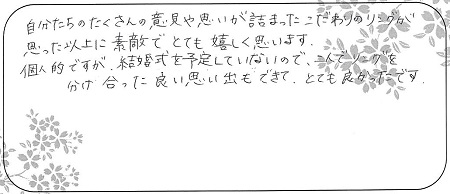 自分たちのたくさんの意見や思いが詰まったこだわりのリングが
思った以上に素敵でとても嬉しく思います.
個人的ですが、結婚式を予定していないので、二人でリングを
分け合った良い思い出もできて、とても良かったです.